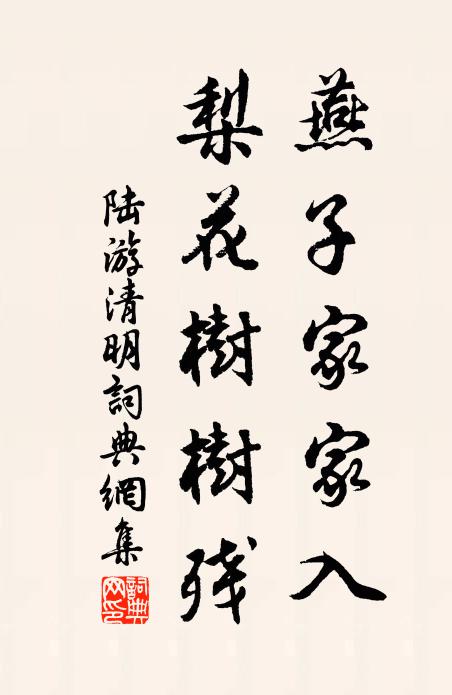 燕子家家入
梨花樹樹残
陆游清明詞典網集
詞典网印